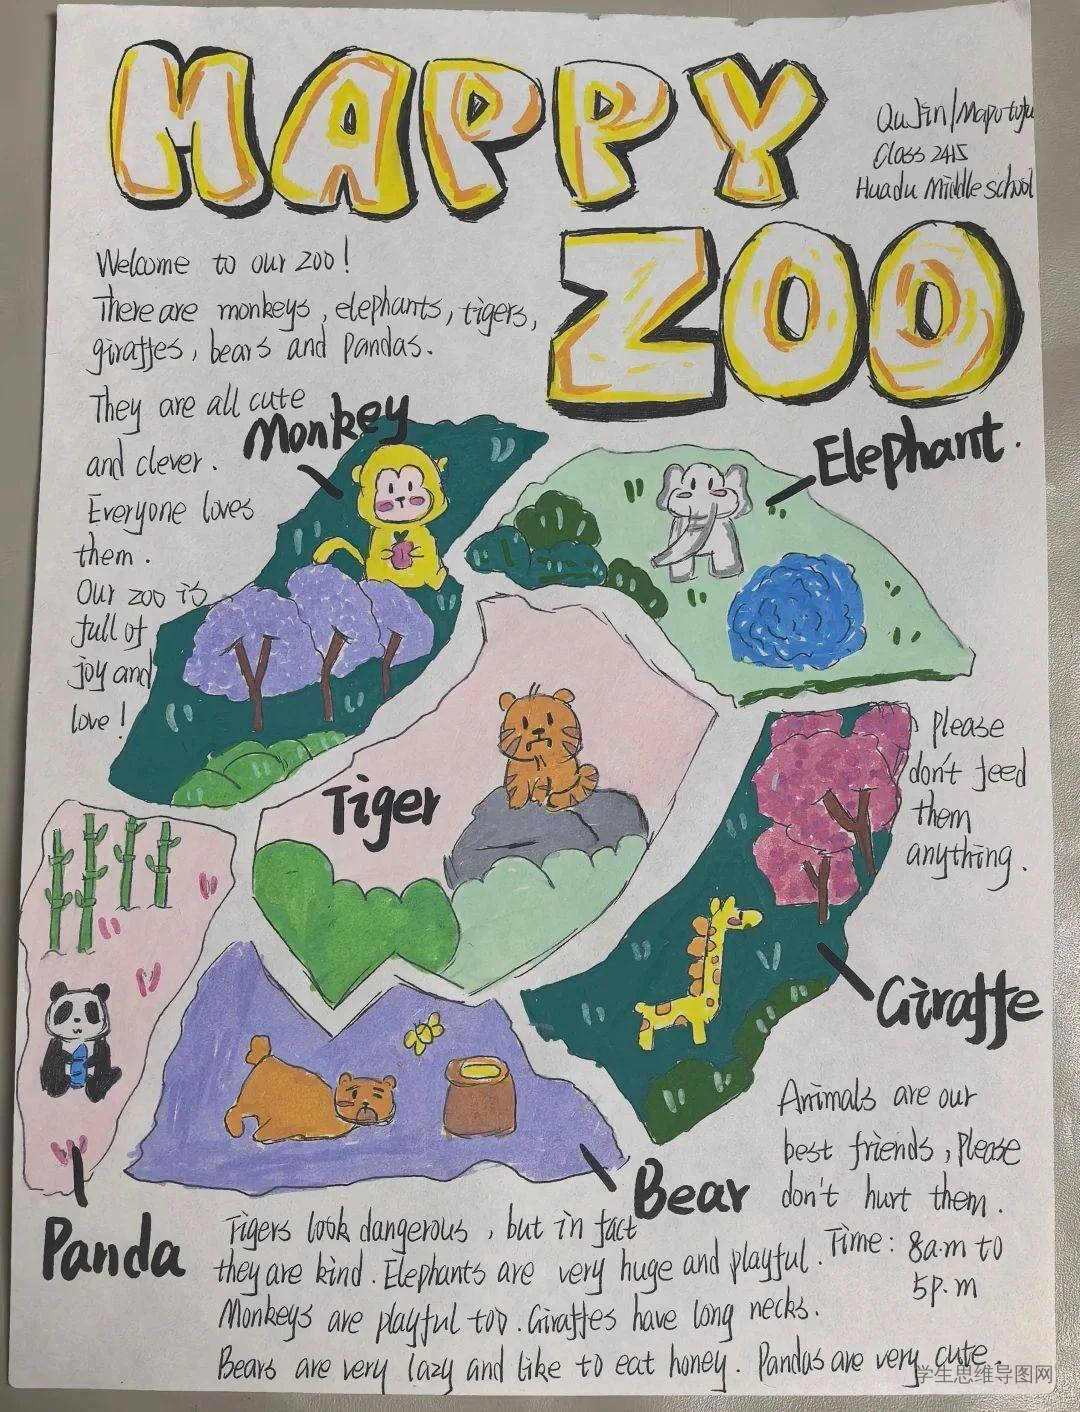 HAPPY
ZOO
QuJin/Mapo tofu
Class 2415
Huadu Middle school
Welcome to our zoo!
There are monkeys, elephants, tigers,
giraffes, bears and Pandas.
They are all cute
and clever.
Everyone loves
them.
Our zoo is
full of
joy and
love!
Monkey
Elephant.
Tiger
Please
don't feed
them
anything.
Giraffe
Animals are our
best friends, Please
don't hurt them.
Time: 8a.m to
5p.m
Bear
Panda
Tigers look dangerous, but in fact
they are kind. Elephants are very huge and playful.
Monkeys are playful too. Giraffes have long necks.
Bears are very lazy and like to eat honey. Pandas are very cute.
学生思维导图网